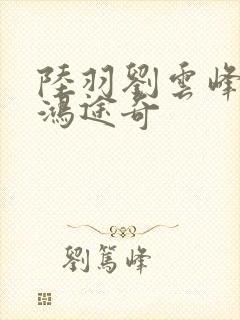 陸羽劉雲峰
鴻途奇
劉篤峰